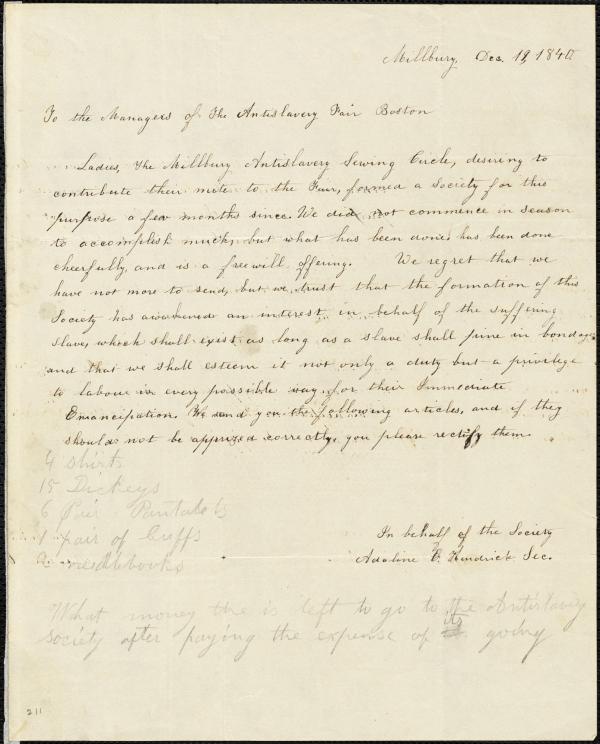 Millbury, Dec. 19, 1840
To the Managers of The Antislavery Fair Boston
Ladies, The Millbury Antislavery Sewing Circle, desiring to
contribute their mite to the Fair, formed a Society for this
purpose a few months since. We did not commence in season
to accomplish much, but what has been done, has been done
cheerfully, and is a freewill offering. We regret that we
have not more to send, but we trust that the formation of this
Society has awakened an interest in behalf of the suffering
slave, which shall exist as long as a slave shall pine in bondage
and that we shall esteem it not only a duty but a privilege
to labour in every possible way, for their Immediate
Emancipation. We send you the following articles, and if they
should not be apprized correctly, you please rectify them.
4 shirts
15 Dickeys
6 Pair Pantalets
1 pair of Cuffs
2 needlebooks
In behalf of the Society
Adaline Sec.
What money the is left to go to the Antislavery
society after paying the expense of its going
211